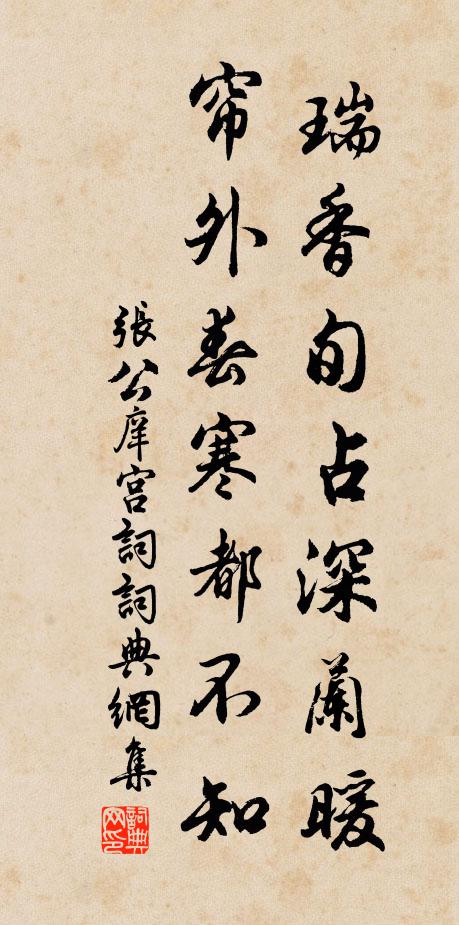 瑞香旬占深蘭暖
帘外春寒都不知
張公庠宫詞詞典網集
詞典
网印